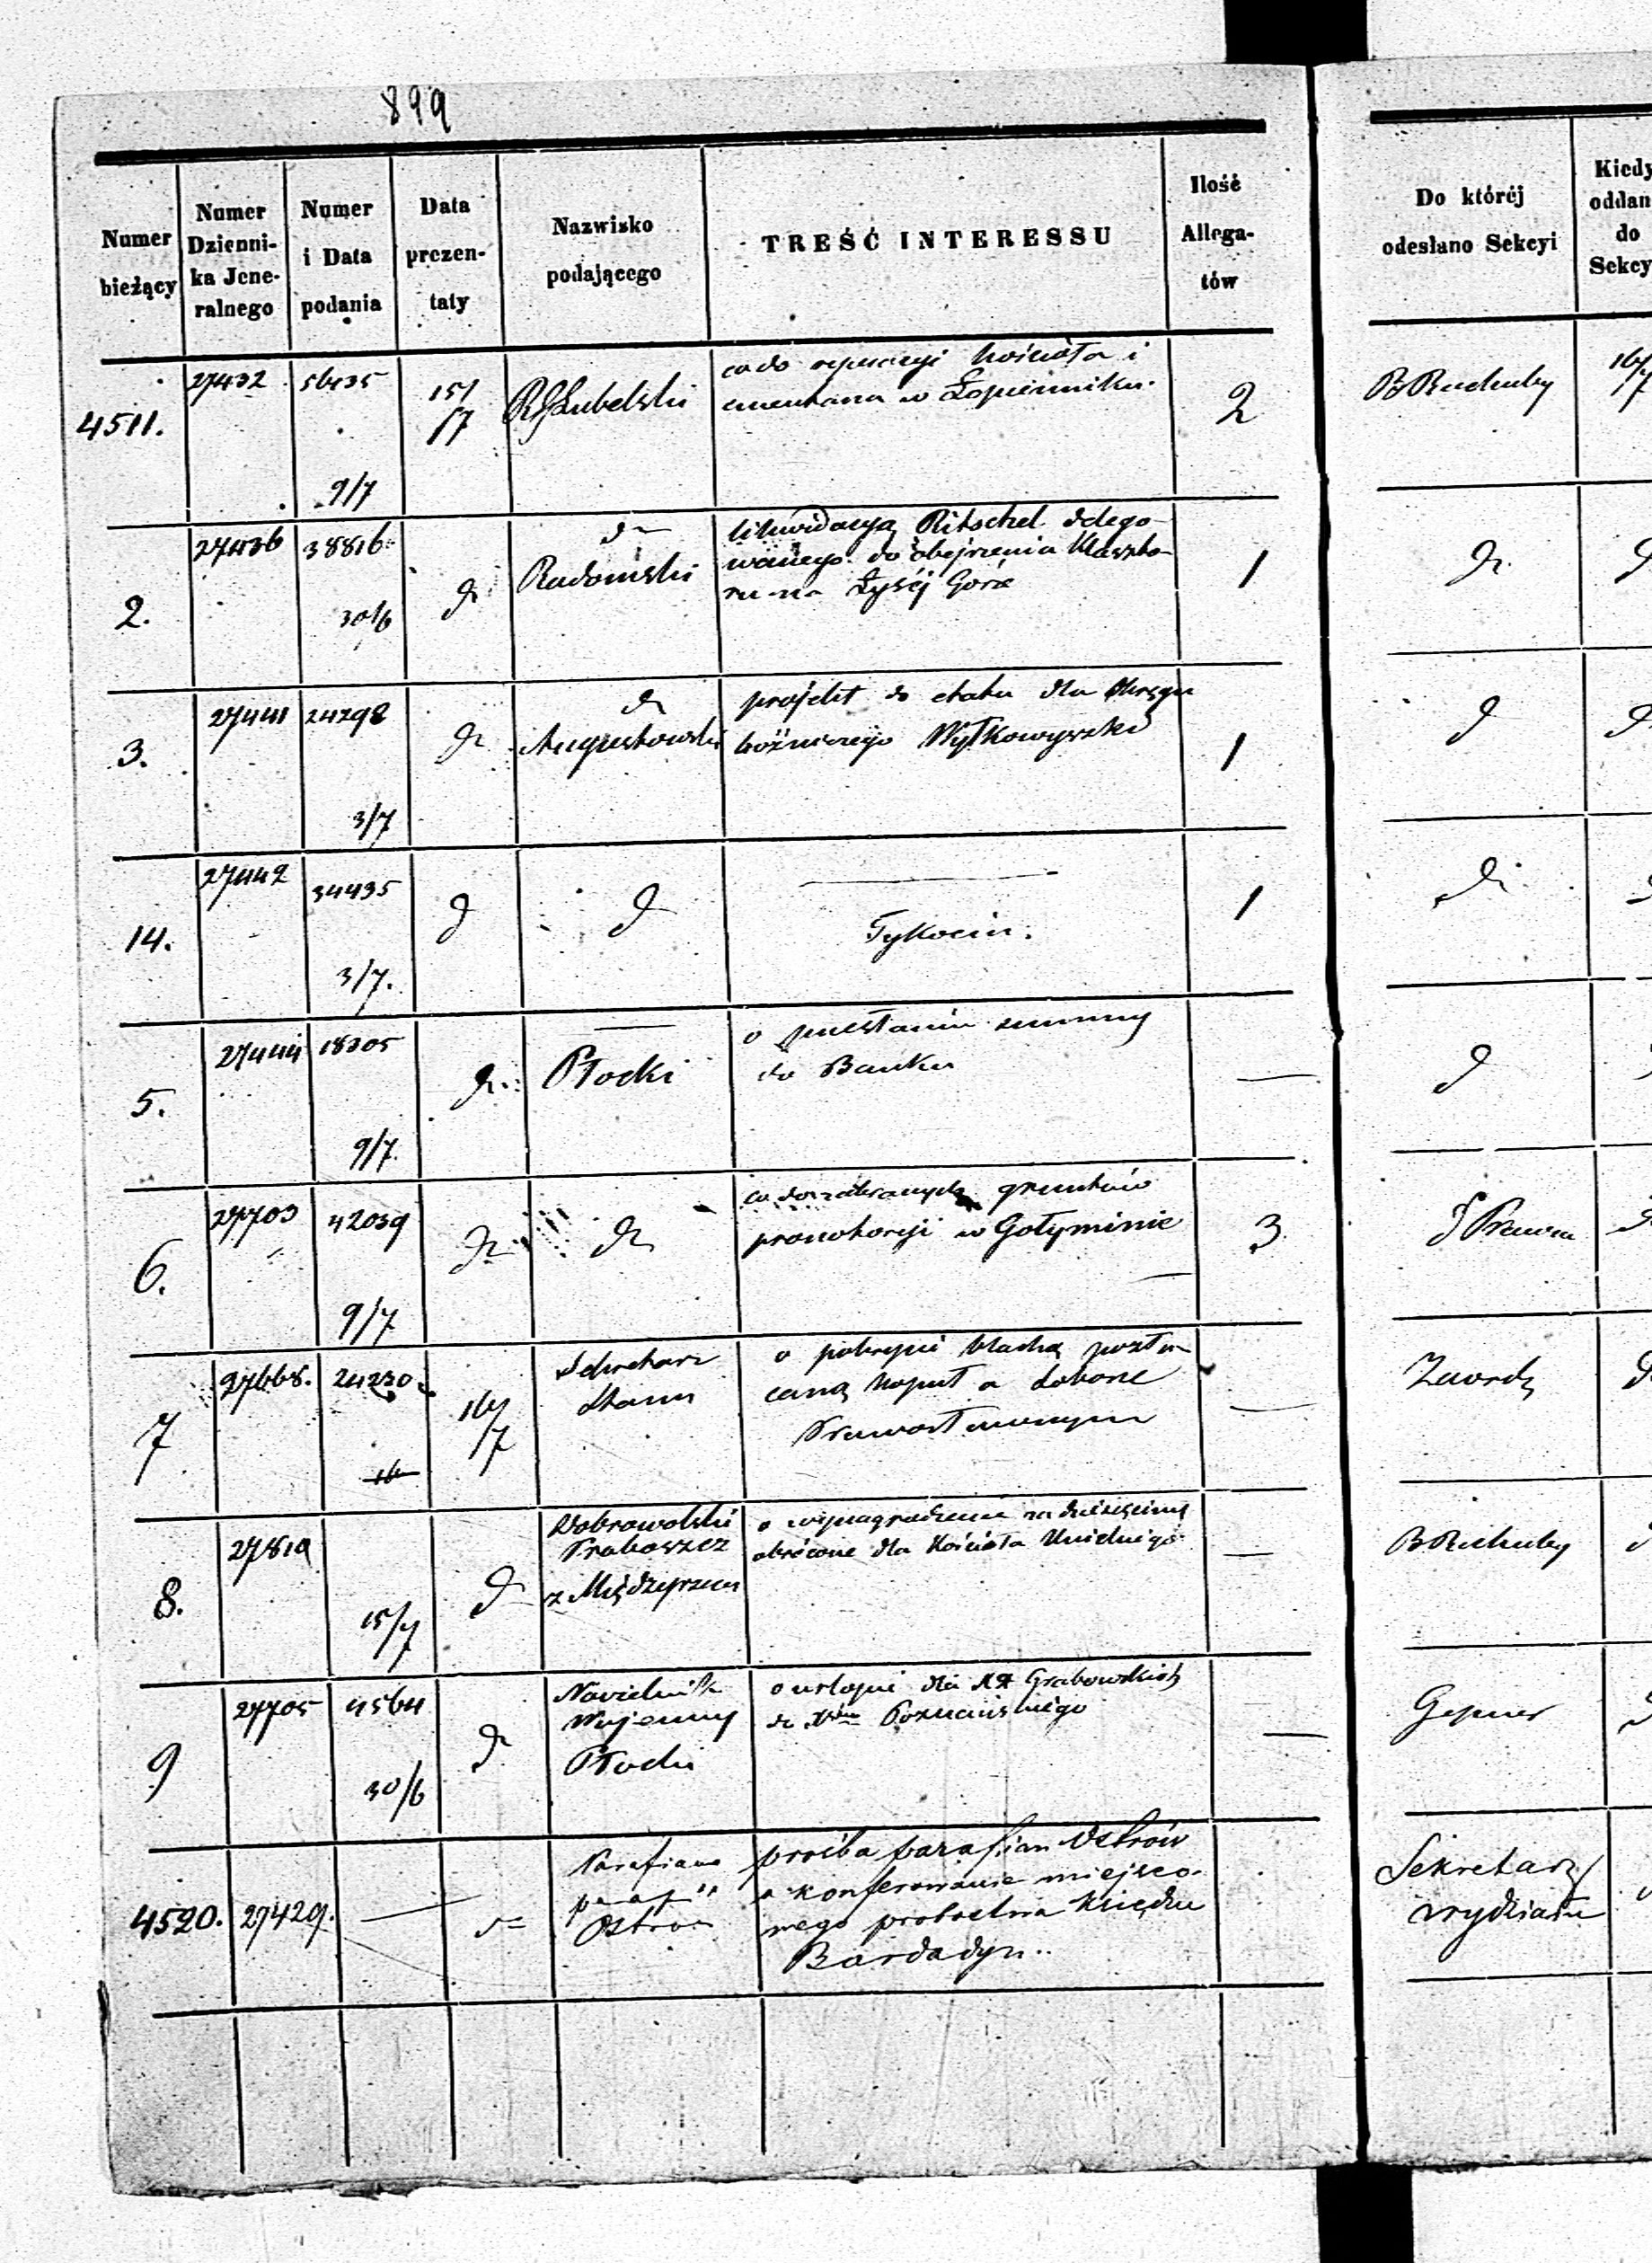 899
Numer bieżący
Numer Dzienni-ka Jene-ralnego
Numer i Data podania
Data prezen-taty
Nazwisko podającego
TREŚĆ INTERESSU
Ilość Allega-tów
Do któréj odesłano Sekcyi
Kiedy oddan do Sekcy
4511. 27432 56435 9/7 15/7 RGLubelski
co do reperacyi kościoła i
cmentarza w Łopienniku. 2
16/7
2. 27436 38816 30/6 dr Radomski
likwidacya Ritschel delego-
wanego do obejrzenia Klaszto-
ru na Łyséj Górze 1 dr
3. 27441 24298 3/7 dr Augustowski
projekt do etatu dla Okręgu
bóżniczego Wyłkowyszki 1 d
14. 27442 34435 3/7. d d
Tykocin. 1 dr
5. 27444 18305 9/7. dr Płocki
o przesłaniu summy
do Banku — d
6. 27703 42039 9/7 dr dr
co do zabranych gruntów
w Gołyminie 3
7 27668. 24230 16/7 Sekretarz Stanu
o pokrycie blachą pozła-
caną kopuł
—
8. 27819 15/7 d Dobrowolski
Proboszcz
z Międzyrzeca
o wynagrodzenie za dziesięciny
obrócone dla Kościoła Unickiego —
9 27705 4564 30/6 dr Naczelnik
Wojenny
Płocki
o urlopie dla XX Grabowskich
do Xwa Poznańskiego — Gepner
4520. 27429. — Parafianie
Ostrow
prośba parafian Ostrów
o konferowanie miejsco-
wego probostwa Księdzu
Bardadyn..
Sekretarz
wydziału